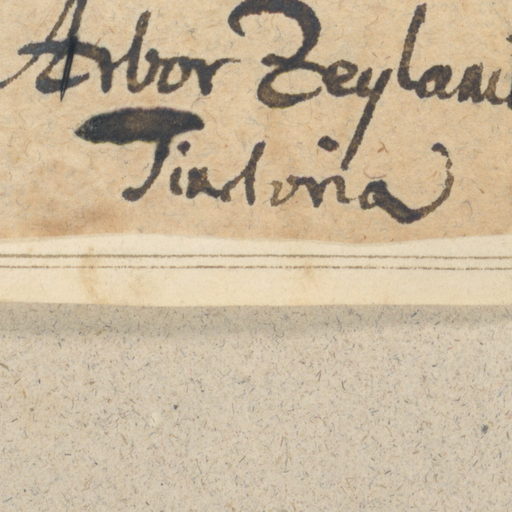 Arbor Zeylani
Tinctoria